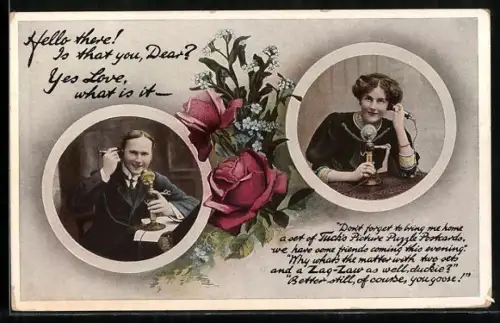 Hello there!
Is that you, Dear?
Yes Love,
what is it—
"Don't forget to bring me home
a set of Tuck's Picture Puzzle Postcards,
we have some friends coming this evening."
"Why what's the matter with two sets
and a Zag-Zaw as well, duckie?"
"Better still, of course, you goose!"